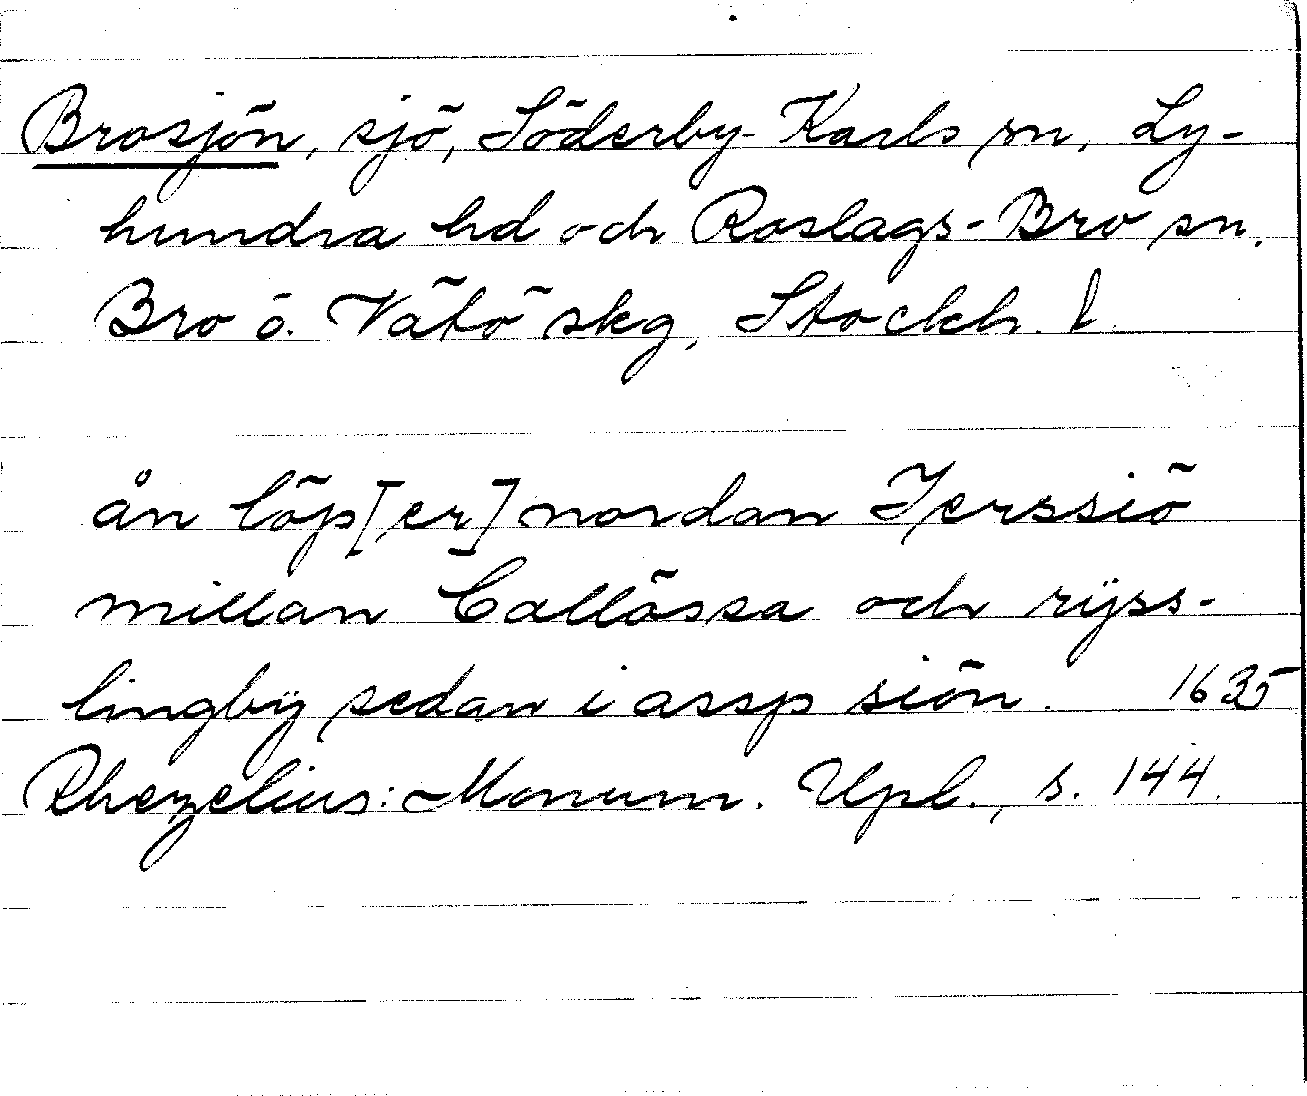 Brosjön, sjö, Söderby-Karls sn, Ly-
hundra hd och Roslags-Bro sn.
Bro o. Vätö skg, Stockh. l.
ån löp[er] nordan Jerssiö
millan Callössa och rÿss-
lingbÿ sedan i assp siön. 1635
Rhezelius: Monum. Upl., s. 144.